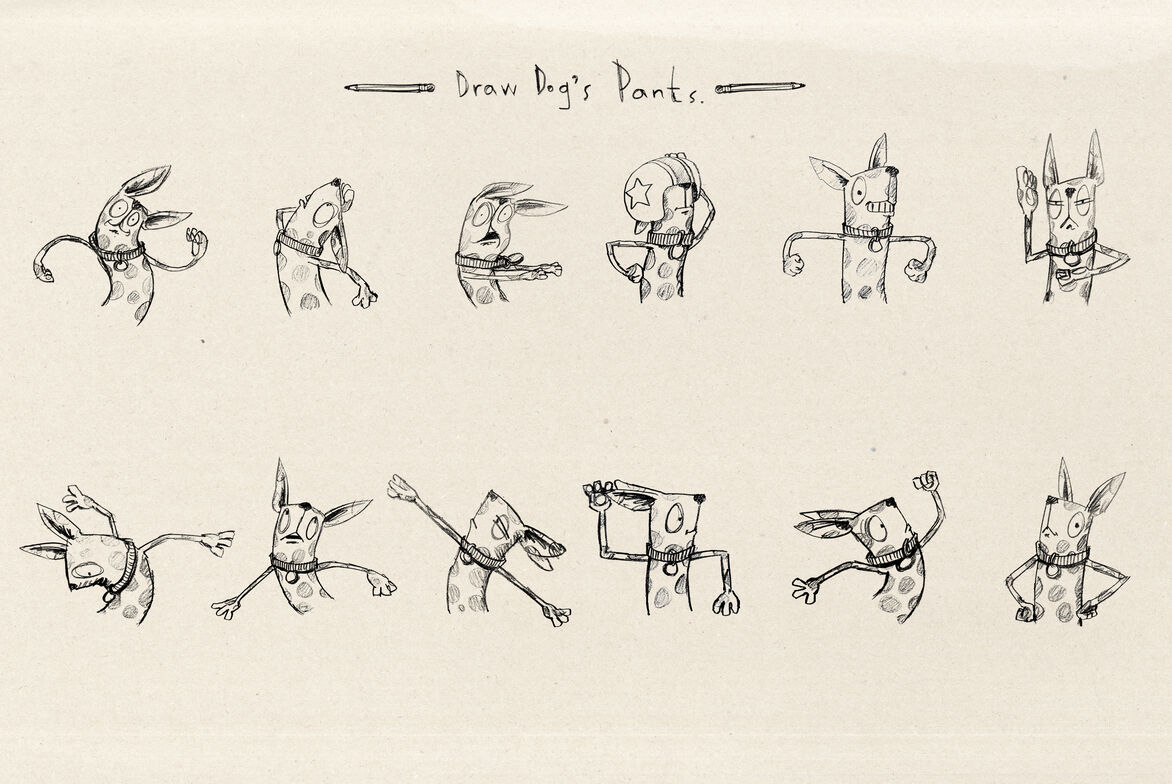 Draw Dog's Pants.